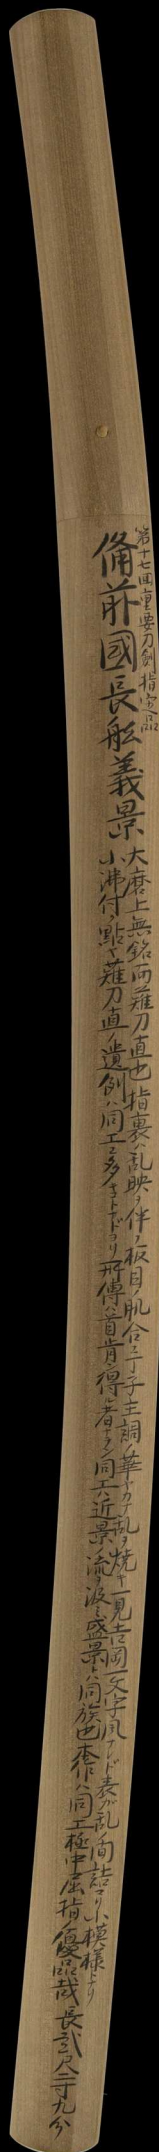 第十七回重要刀剣指定品
備前國長船義景
大磨上無銘而薙刀直也指裏ハ乱映ヲ伴ノ板目ノ肌合ニ丁子主調ノ華ヤカナ乱ヲ焼キ一見吉岡一文字風ナレド表ガ乱ノ間詰マリ小模様トナリ
小沸付ノ點ヤ薙刀直ノ遺例ハ同工ニ多キコト 所傳ハ首肯シ得ル者ナラン同工ハ近景ノ流ヲ汲ミ盛景トハ同族也本作ハ同工極中屈指ノ優品哉 長貳尺二寸九分